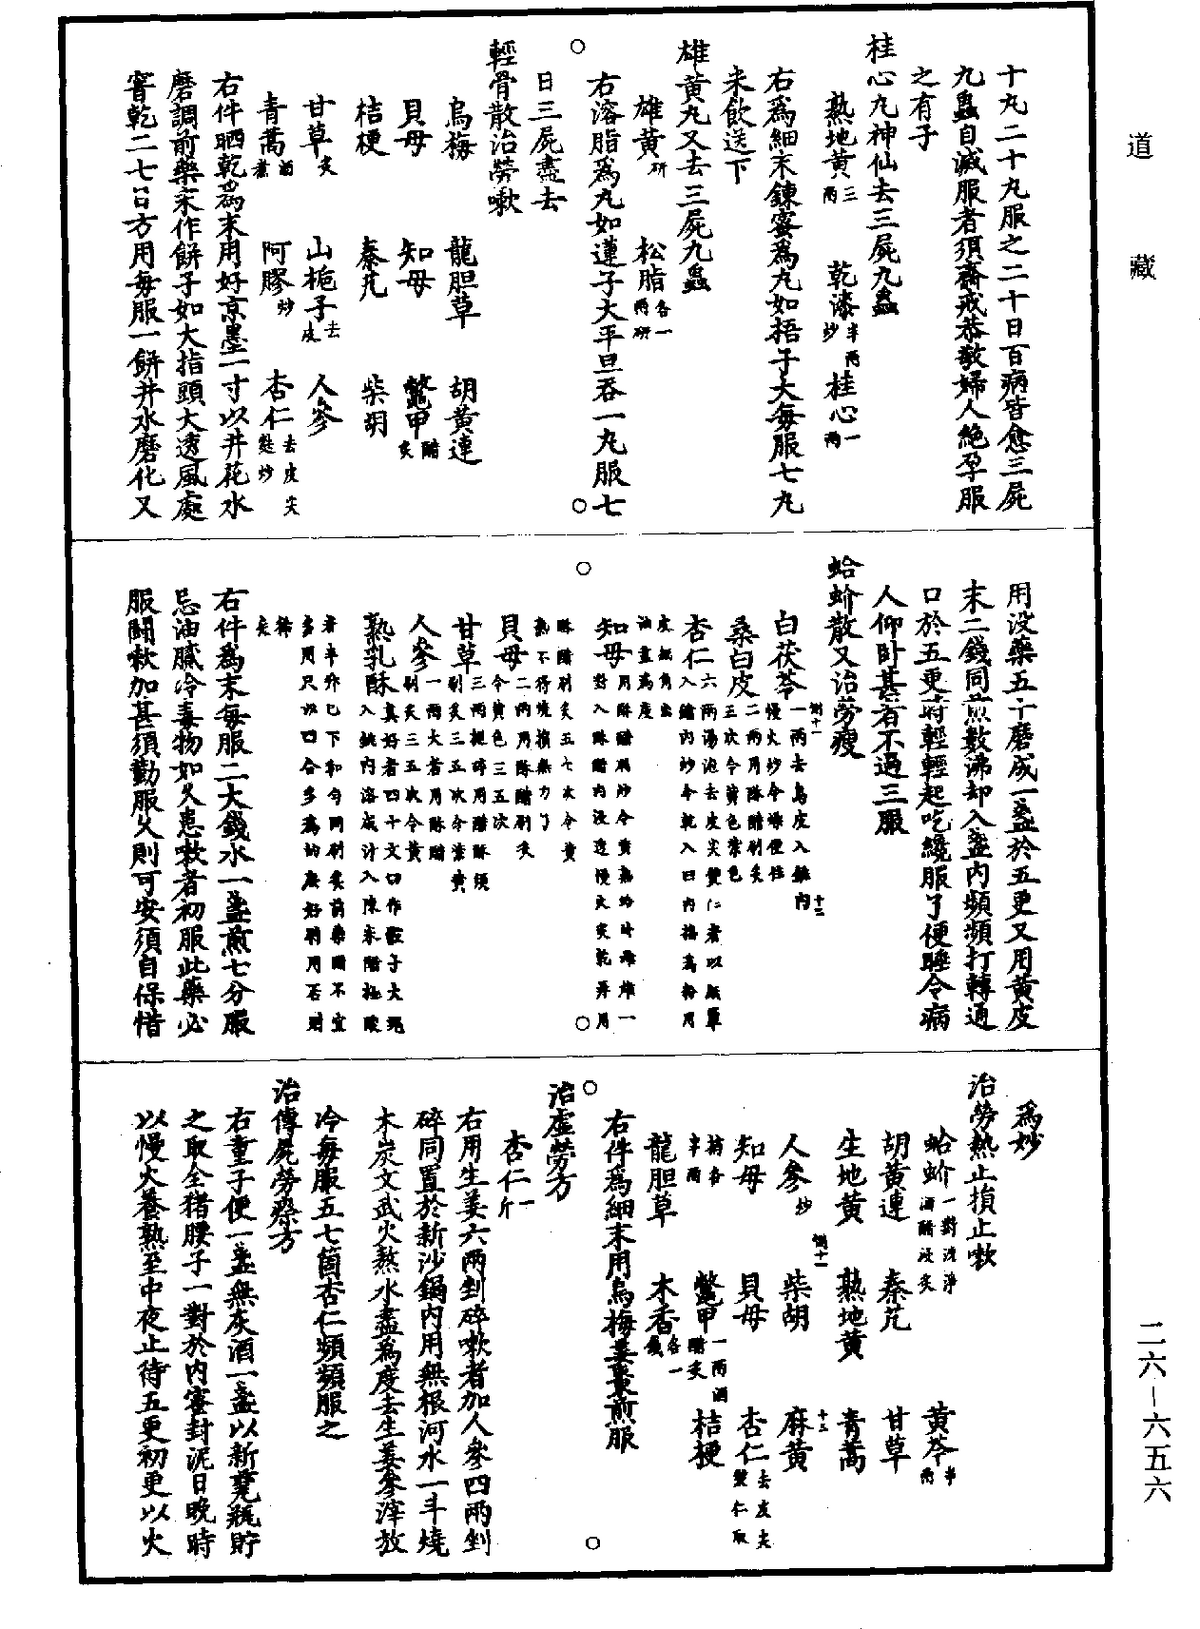 道藏
十丸二十丸服之二十日百病皆愈三屍
九蟲自滅服者須齋戒恭敬婦人絶孕服
之有子
桂心丸神仙去三屍九蟲
熟地黄三兩 乾漆半兩炒 桂心一兩
右爲細末錬蜜爲丸如梧子大每服七丸
米飲送下
雄黄丸又去三屍九蟲
雄黄研 松脂各一兩研
右溶脂爲丸如蓮子大平旦吞一丸服七
日三屍盡去
輕骨散治勞嗽
烏梅 龍胆草 胡黄連
貝母 知母 鼈甲醋炙
桔梗 秦艽 柴胡
甘草炙 山梔子去皮 人參
青蒿酒煮 阿膠炒 杏仁去皮尖麸炒
右件晒乾爲末用好京墨一寸以井花水
磨調前藥末作餅子如大指頭大透風處
窨乾二七日方用每服一餅井水磨化又
用没藥五十磨成一盞於五更又用黄皮
末二錢同煎數沸却入盞内頻頻打轉通
口於五更時輕輕起吃纔服了便睡令病
人仰卧甚者不過三服
蛤蚧散又治勞瘦
白茯苓一兩去烏皮入銚内慢火炒令燥便住
桑白皮二兩用酥醋刷炙三次令黄色紫色
杏仁六兩湯泡去皮尖雙仁者以
知母
貝母二兩用酥醋刷炙令黄色三五次
甘草三兩搥碎用醋酥須刷炙三五次令紫黄
人參一兩大者用酥醋刷炙三五次令黄
熟乳酥真好者四十文入銚内溶成汁入陳米醋
右件爲末每服二大錢水一盞煎七分服
忌油膩冷毒物如久患嗽者初服此藥必
服關嗽加甚須勤服久則可安須自保惜
爲妙
治勞熱止損止嗽
蛤蚧一對洗淨酒醋浸炙 黄芩半兩
胡黄連 秦艽 甘草
生地黄 熟地黄 青蒿
人參炒 柴胡 麻黄
知母 貝母 杏仁去皮尖雙仁取
鼈甲一兩酒醋炙 桔梗
龍胆草 木香各一錢
右件爲細末用烏梅姜棗煎服
治虚勞方
杏仁一斤
右用生姜六兩剉碎嗽者加人參四兩剉
碎同置於新沙鍋内用無根河水一斗燒
木炭文武火熬水盡爲度去生姜參滓放
冷每服五七箇杏仁頻頻服之
治傳屍勞瘵方
右童子便一盞無灰酒一盞以新甆瓶貯
之取全猪腰子一對於内密封泥日晚時
以慢火養熟至中夜止待五更初更以火
二六—六五六